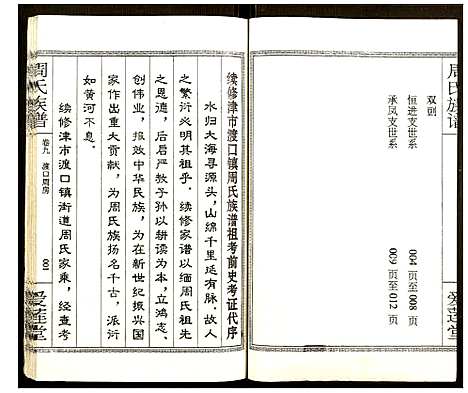 周氏族谱
双项
恒进支世系 004 页至 008 页
承凤支世系 009 页至 012 页
爱莲堂
续修津市渡口镇周氏族谱祖考前史考证代序
水归大海寻源头，山绵千里延有脉。故人
之繁衍必明其祖乎。续修家谱以缅周氏祖先
之恩德，后启严教子孙以耕读为本，立鸿志、
创伟业，报效中华民族，为在新世纪振兴国
家作出重大贡献，为周氏族扬名千古，派衍
如黄河不息。
续修津市渡口镇街道周氏家乘，经查考
周氏族谱
卷九 渡口周房
001
爱莲堂